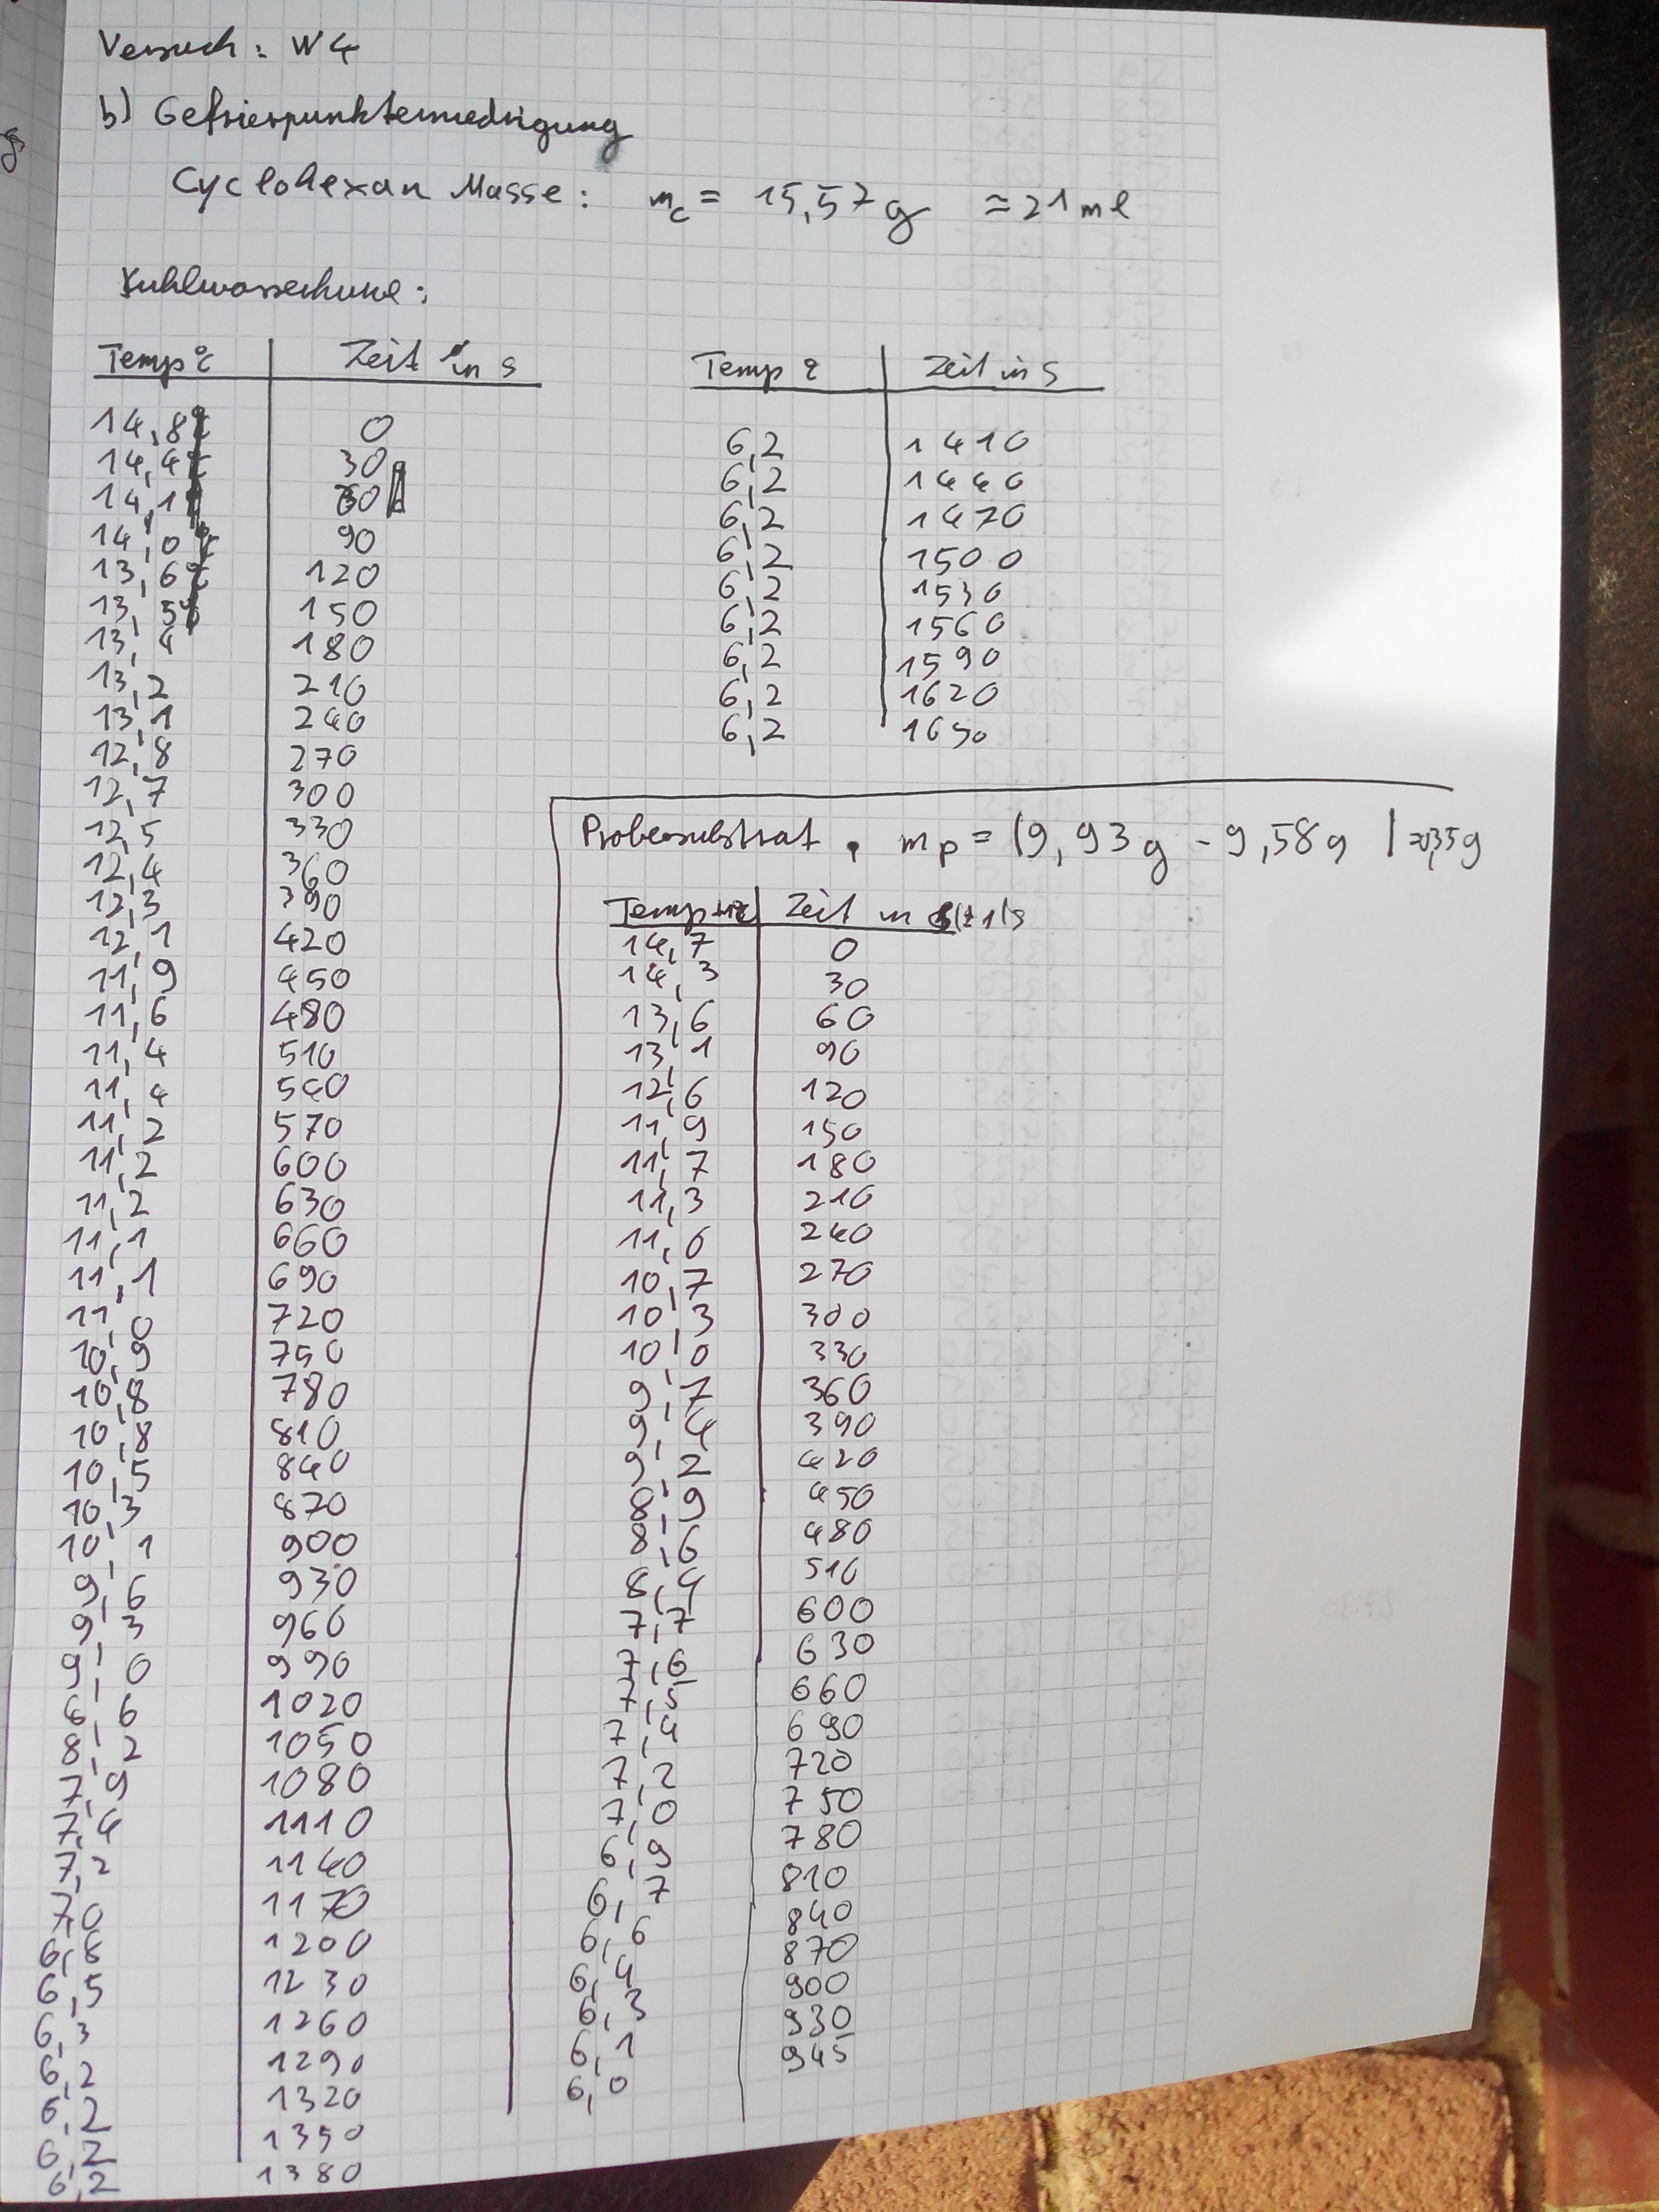 Versuch: W4
b) Gefrierpunkterniedrigung
Cyclohexan Masse: mc = 15,57 g ≈ 21 ml
Temp °C Zeit in s
14,8 0
14,4 30
14,1 60
14,0 90
13,6 120
13,5 150
13,4 180
13,2 210
13,1 240
12,8 270
12,7 300
12,5 330
12,4 360
12,3 390
12,1 420
11,9 450
11,6 480
11,4 510
11,4 540
11,2 570
11,2 600
11,2 630
11,1 660
11,1 690
11,0 720
10,9 750
10,8 780
10,8 810
10,5 840
10,3 870
10,1 900
9,6 930
9,3 960
9,0 990
6,6 1020
8,2 1050
7,9 1080
7,4 1110
7,2 1140
7,0 1170
6,8 1200
6,5 1230
6,3 1260
6,2 1290
6,2 1320
6,2 1350
6,2 1380
Temp °C Zeit in s
6,2 1410
6,2 1440
6,2 1470
6,2 1500
6,2 1530
6,2 1560
6,2 1590
6,2 1620
6,2 1650
Probensubstrat. mp = (9,93g - 9,58g) = 0,35g
Temp °C Zeit in (±1)s
14,7 0
14,3 30
13,6 60
13,1 90
12,6 120
11,9 150
11,7 180
11,3 210
11,0 240
10,7 270
10,3 300
10,0 330
9,7 360
9,4 390
9,2 420
8,9 450
8,6 480
8,4 510
7,7 600
7,6 630
7,5 660
7,4 690
7,2 720
7,0 750
6,9 780
6,7 810
6,6 840
6,4 870
6,3 900
6,1 930
6,0 945